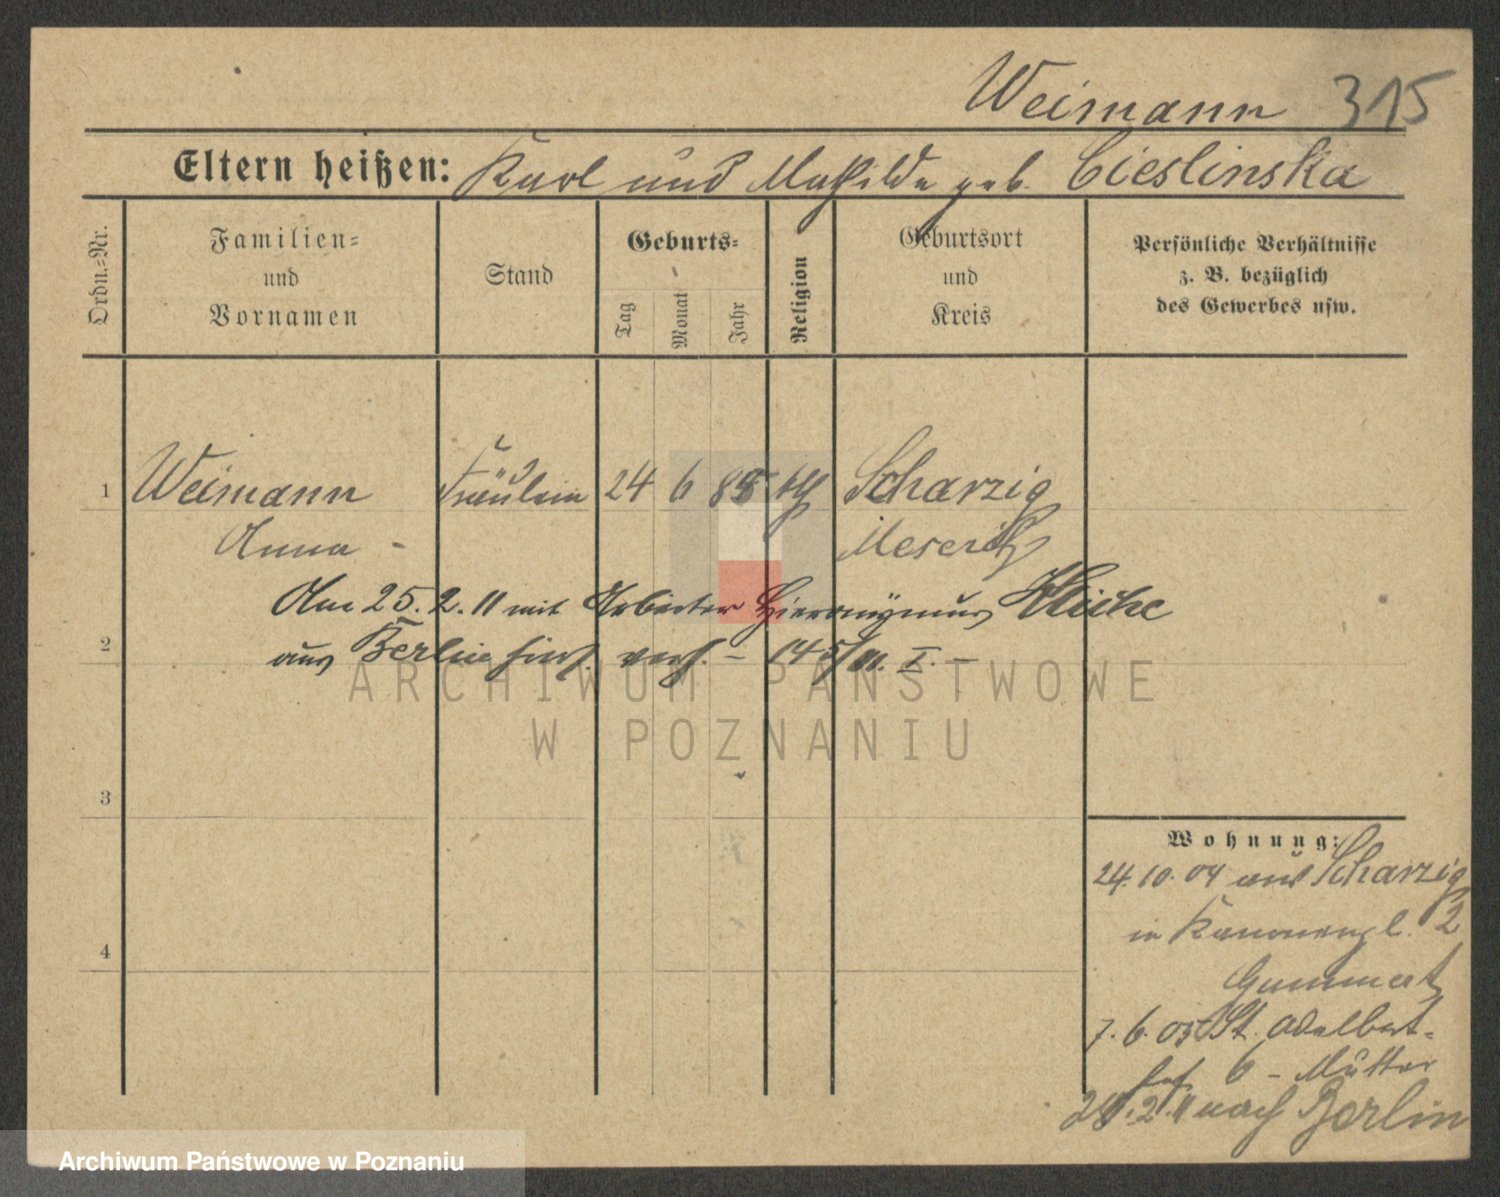 Weimann 315
Eltern heißen: Karl und Mathilde geb. Cieslinska
Ordn.=Nr.
Familien=
und
Vornamen
Stand
Geburts=
Tag
Monat
Jahr
Religion
Geburtsort
und
Kreis
Persönliche Verhältnisse
z. B. bezüglich
des Gewerbes usw.
1 Weimann Fräulein 24 6 85 kth Scharzig
Anna - Meseritz
Am 25.2.11 mit Arbeiter Hieronymus
2
aus Berlin hier verh. - 145/11. I. -
ARCHIWUM PAŃSTWOWE
W POZNANIU
3
4
Wohnung:
24.10.04 aus Scharzig
in Kanonenpl. 2
7.6.05 St. Adalbert-
6 - Mutter
28.2.11 nach Berlin
Archiwum Państwowe w Poznaniu